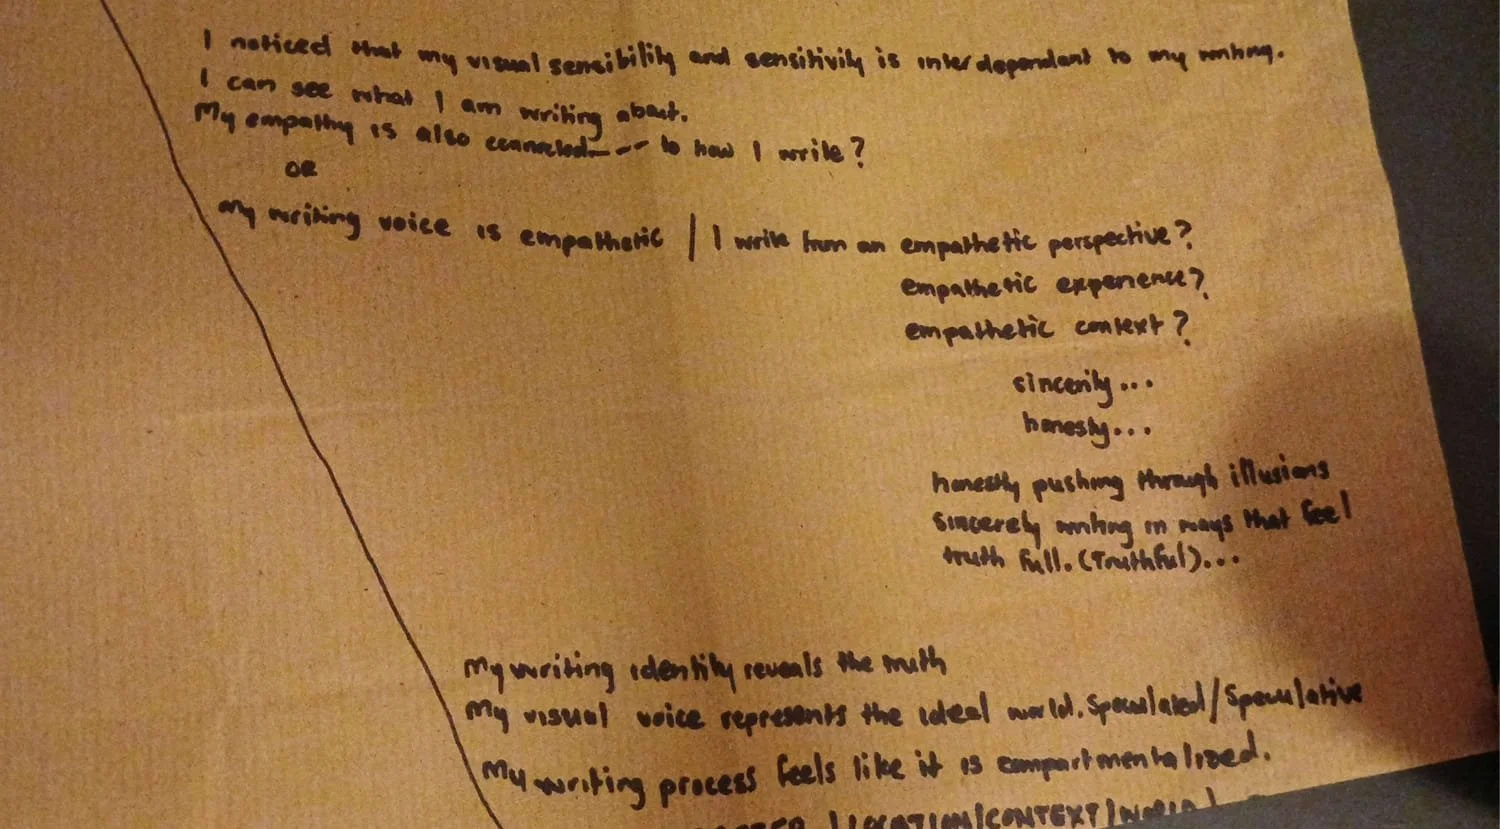 I noticed that my visual sensibility and sensitivity is interdependant to my writing.
I can see what I am writing about.
My empathy is also connected--- to how I write?
OR
My writing voice is empathetic / I write from an empathetic perspective?
empathetic experience?
empathetic context?
sincerity...
honesty...
honestly pushing through illusions
sincerely writing in ways that feel
truth full. (Truthful)...
My writing identity reveals the truth
My visual voice represents the ideal world. Speculated/Speculative
My writing process feels like it is compartmentalized.
/LOCATION/CONTEXT/WORLD/